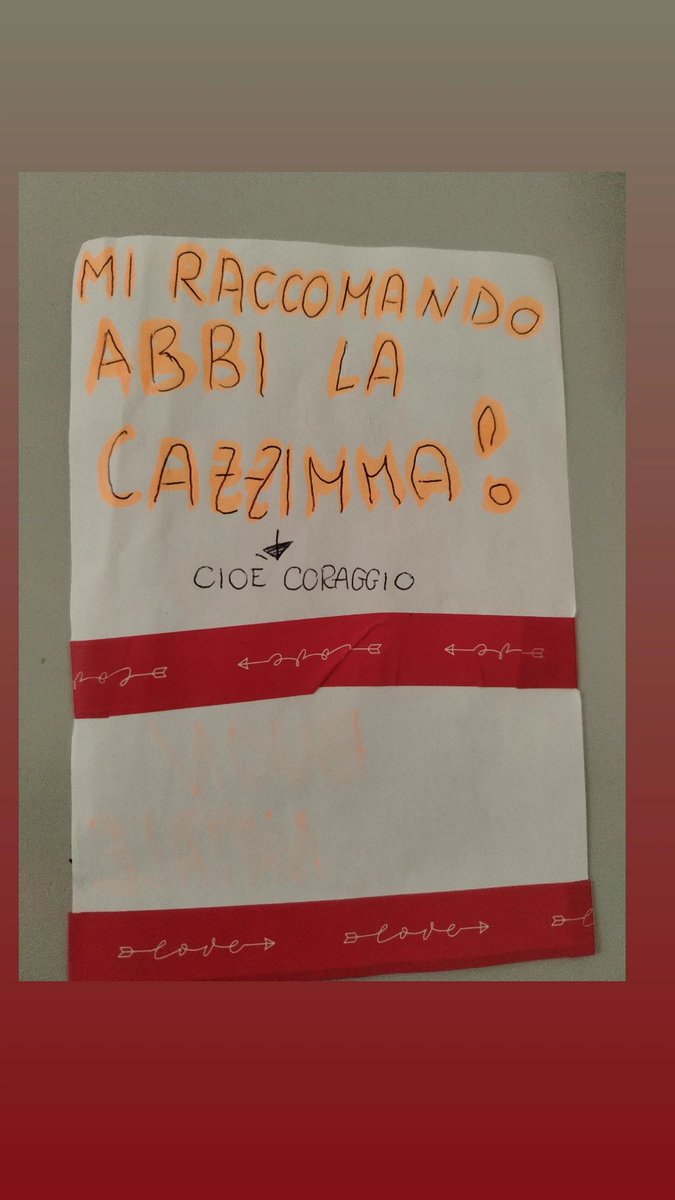 MI RACCOMANDO
ABBI LA
CAZZIMMA!
CIOÈ CORAGGIO
love love love
love love love